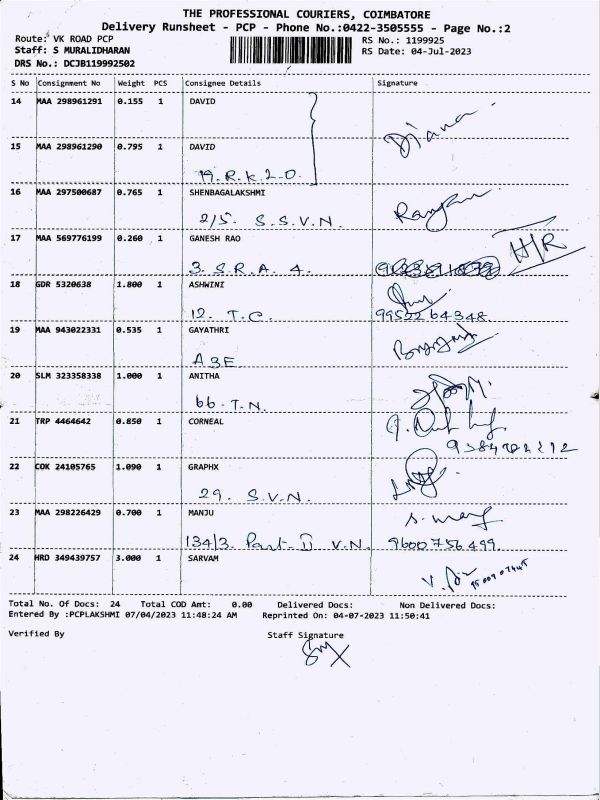 THE PROFESSIONAL COURIERS, COIMBATORE
Delivery Runsheet - PCP - Phone No.:0422-3505555 - Page No.:2
Route: VK ROAD PCP
RS No.: 1199925
Staff: S MURALIDHARAN
RS Date: 04-Jul-2023
DRS No.: DCJB119992502
S No Consignment No Weight PCS Consignee Details Signature
14 MAA 298961291 0.155 1 DAVID
Diana
15 MAA 298961290 0.795 1 DAVID
19. R.K.L.O.
16 MAA 297500687 0.765 1 SHENBAGALAKSHMI
2/5. S.S.V.N. Ranjan
17 MAA 569776199 0.260 1 GANESH RAO
H/R
3. S.R.A. 4.
18 GDR 5320638 1.800 1 ASHWINI
12. T.C. 9952264348
19 MAA 943022331 0.535 1 GAYATHRI
A3E
20 SLM 323358338 1.000 1 ANITHA
66-T.N.
21 TRP 4464642 0.850 1 CORNEAL
22 COK 24105765 1.090 1 GRAPHX
29. S.V.N.
23 MAA 298226429 0.700 1 MANJU
134/3. Part-II V.N. 9600756499
24 HRD 349439757 3.000 1 SARVAM
Total No. Of Docs: 24 Total COD Amt: 0.00 Delivered Docs: Non Delivered Docs:
Entered By :PCPLAKSHMI 07/04/2023 11:48:24 AM Reprinted On: 04-07-2023 11:50:41
Verified By Staff Signature